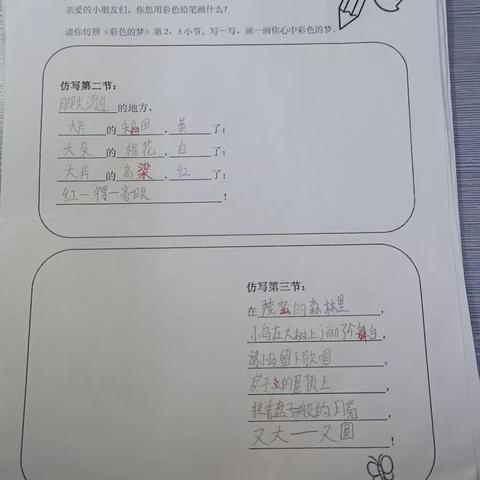 亲爱的小朋友们，你想用彩色铅笔画什么？
请你仿照《彩色的梦》第2、3小节，写一写，画一画你心中彩色的梦。
仿写第二节：
脚尖滑过的地方，
大片的稻田，黄了；
大朵的棉花，白了；
大片的高粱，红了；
红—得—亮眼！
仿写第三节：
在茂密的森林里，
小鸟在大树上 舞台，
请小鸟留下歌唱。
房子的屋顶上，
挂着盘子般的月亮，
又大——又圆！